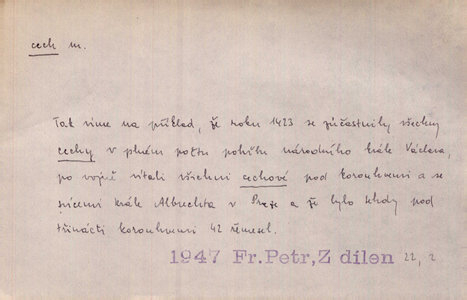 cech m.
Tak víme na příklad, že roku 1423 se zúčastnily všechny
cechy v plném počtu pohřbu národního krále Václava,
po vojně vítali všichni cechové pod korouhvemi a se
svícemi krále Albrechta v Praze a že bylo tehdy pod
třinácti korouhvemi 42 řemesel.
1947 Fr.Petr,Z dílen 22,2